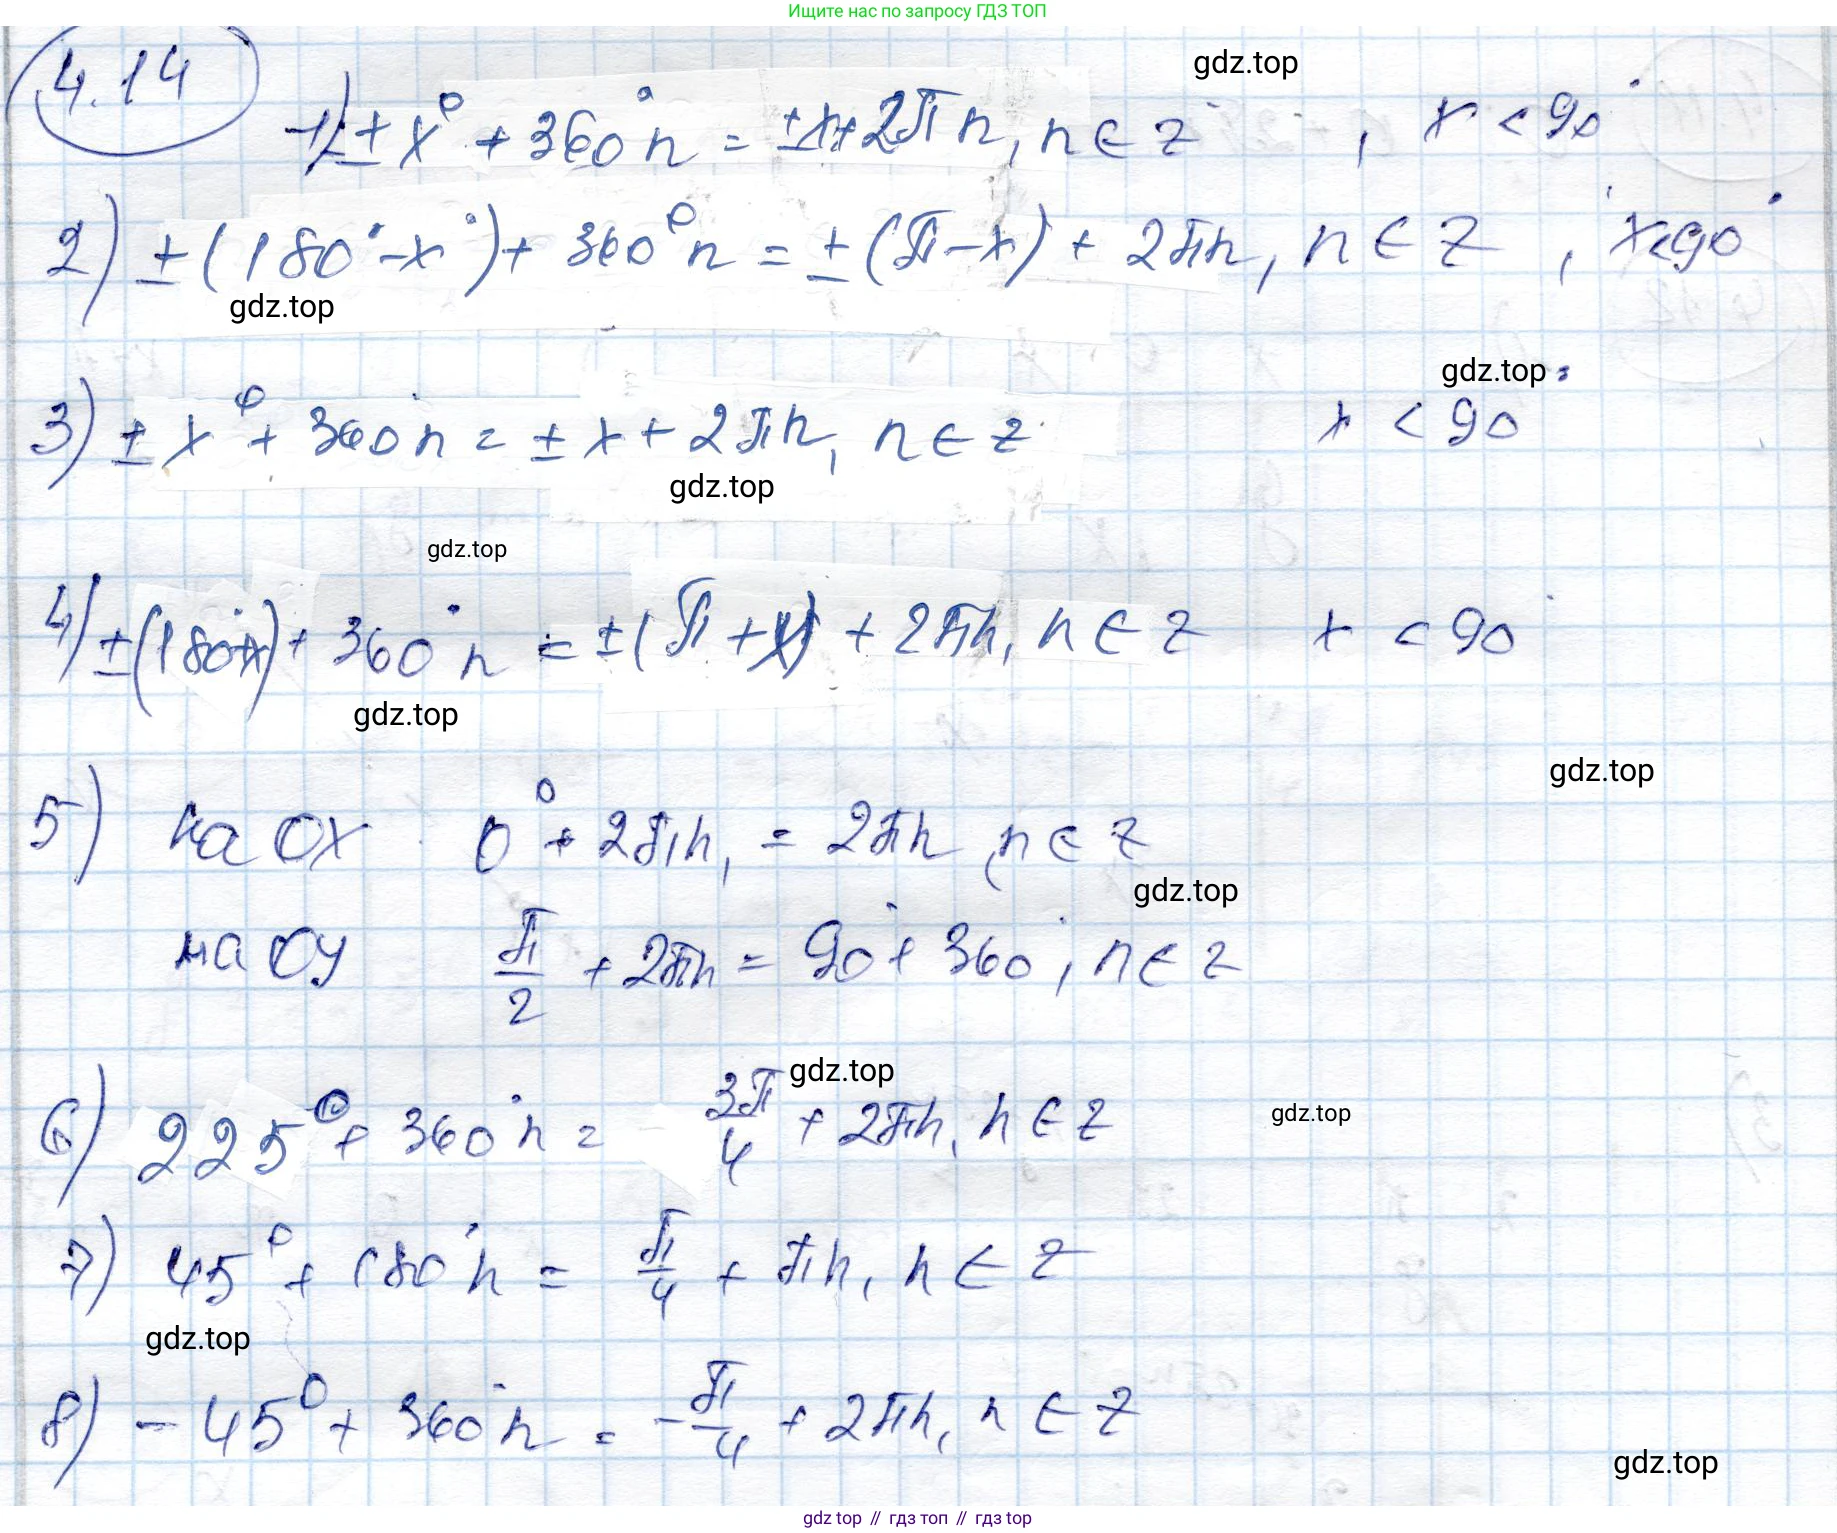 Ищите нас по запросу ГДЗ ТОП
4.14
gdz.top
1) ± x° + 360°n = ±x + 2πn, n ∈ Z , x < 90°
2) ±(180° - x°) + 360°n = ±(π - x) + 2πn, n ∈ Z , x < 90°
gdz.top
gdz.top
3) ± x° + 360°n = ± x + 2πn, n ∈ Z x < 90°
gdz.top
gdz.top
4) ±(180+x) + 360°n = ±(π + x) + 2πn, n ∈ Z x < 90°
gdz.top
gdz.top
5) на OX 0° + 2πn, = 2πn, n ∈ Z
gdz.top
на OY π/2 + 2πn = 90° + 360°, n ∈ Z
gdz.top
6) 225° + 360°n = 3π/4 + 2πn, n ∈ Z
gdz.top
7) 45° + 180°n = π/4 + πn, n ∈ Z
gdz.top
8) - 45° + 360°n = -π/4 + 2πn, n ∈ Z
gdz.top
gdz top // гдз топ // гдз top